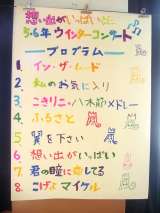 想い出がいっぱい
5・6年 ウインターコンサート
プログラム
1 イン・ザ・ムード
2 私のお気に入り
3 こきりこ・八木節メドレー
4 ふるさと
5 翼を下さい
6 想い出がいっぱい
7 君の瞳に恋してる
8 こげよマイケル